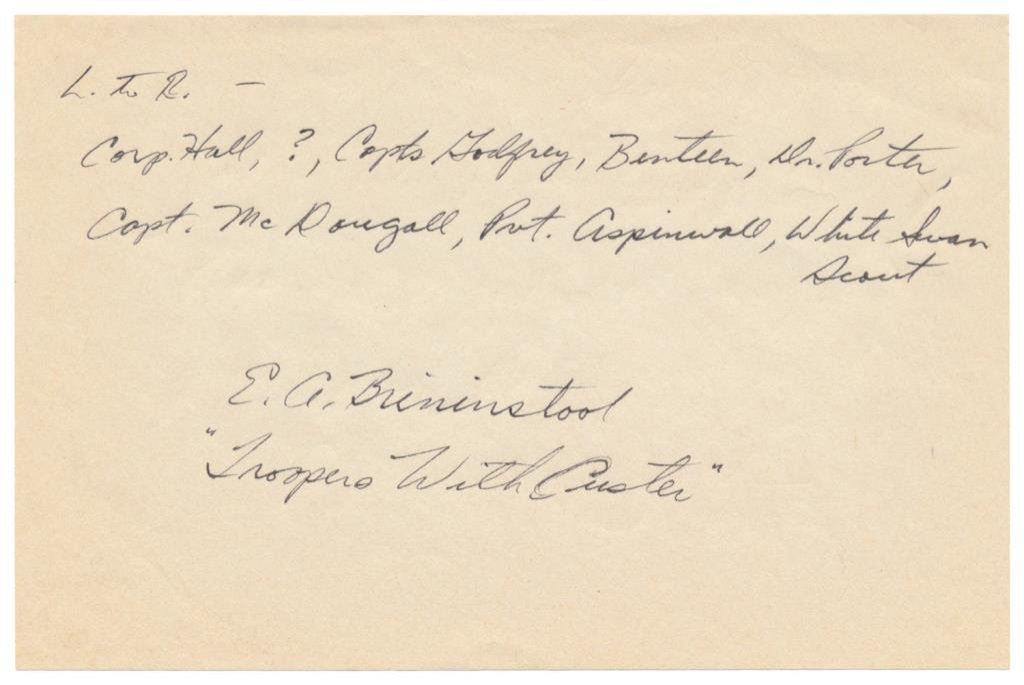 L. to R. –
Corp. Hall, ?, Capts Godfrey, Benteen, Dr. Porter,
Capt. McDougall, Pvt. Aspinwall, White Swan
Scout
E. A. Brininstool
"Troopers With Custer"